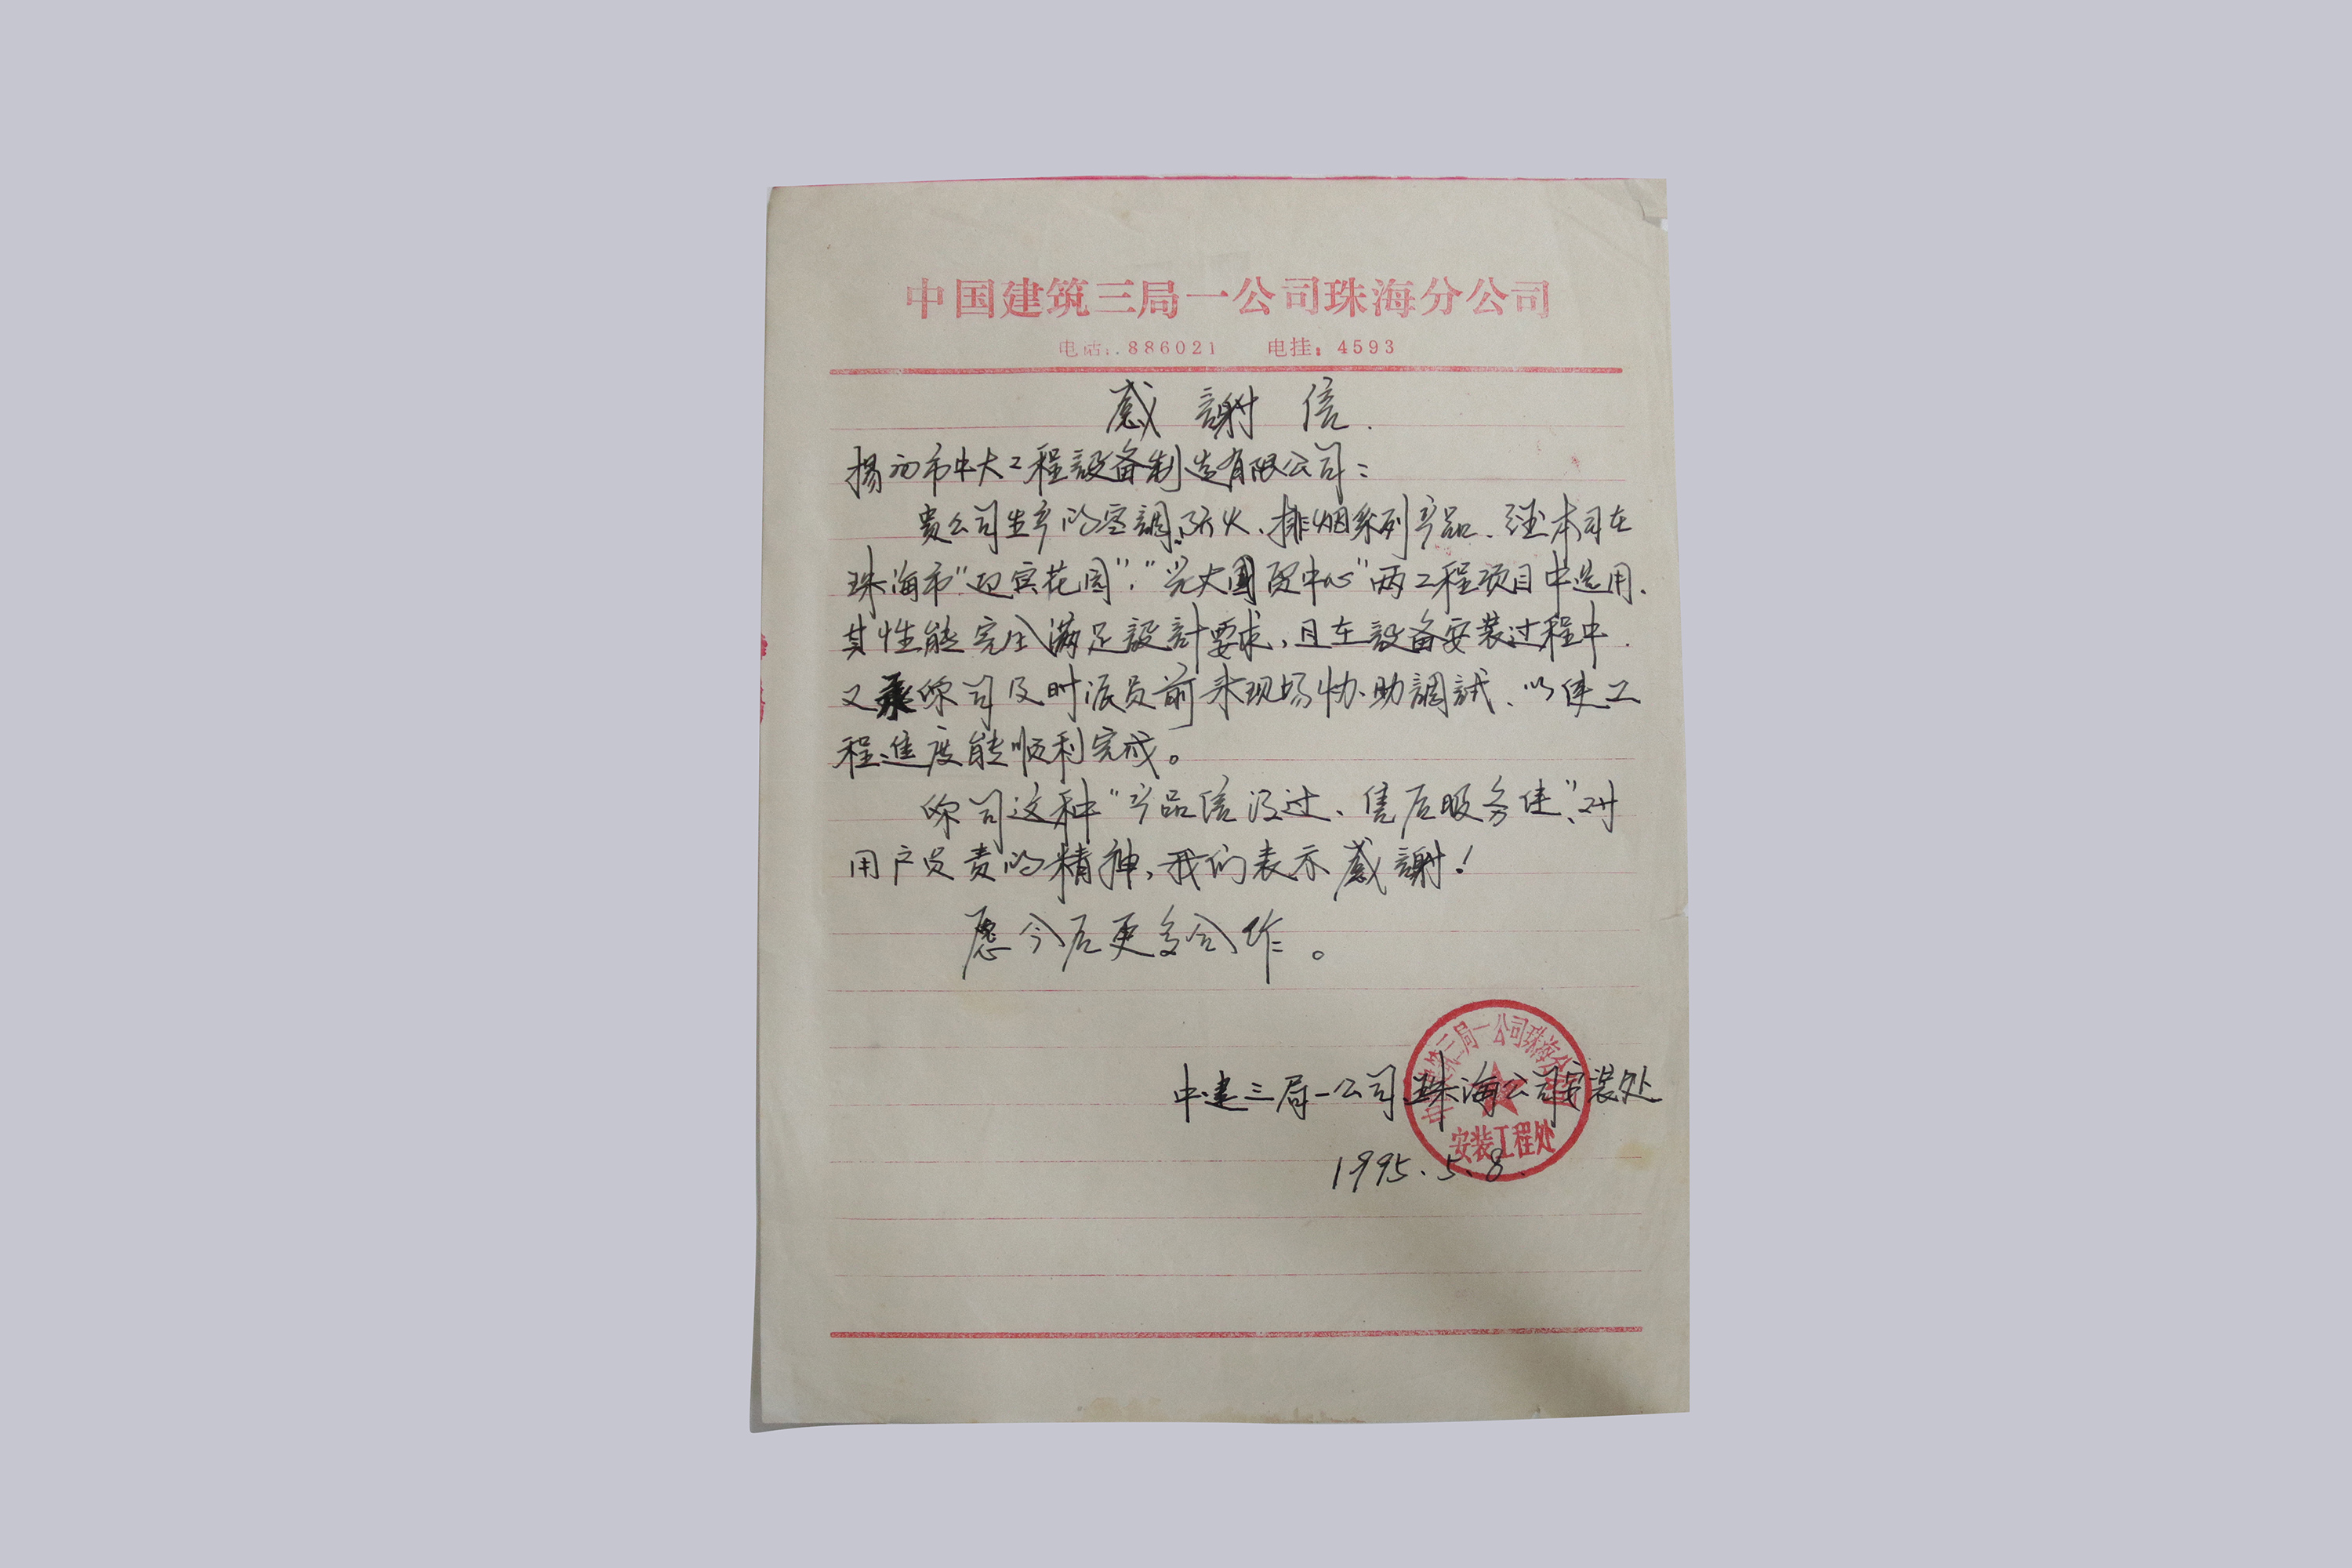 中国建筑三局一公司珠海分公司
电话:.886021 电挂:4593
感謝信.
揚中市中大工程設备制造有限公司:
贵公司生产的空調、防火、排烟系列产品、经本司在
珠海市“迎宾花园”、“光大國贸中心”两工程项目中选用.
其性能完全满足設計要求,且在設备安装过程中.
又承你司及时派员前来现场协助調試、以使工
程進度能顺利完成。
你司这种“产品信得过、售后服务佳”、对
用户负责的精神,我们表示感謝!
愿今后更多合作。
中建三局一公司珠海公司安装处
1995.5.8.
中国建筑三局一公司珠海分公司
安装工程处